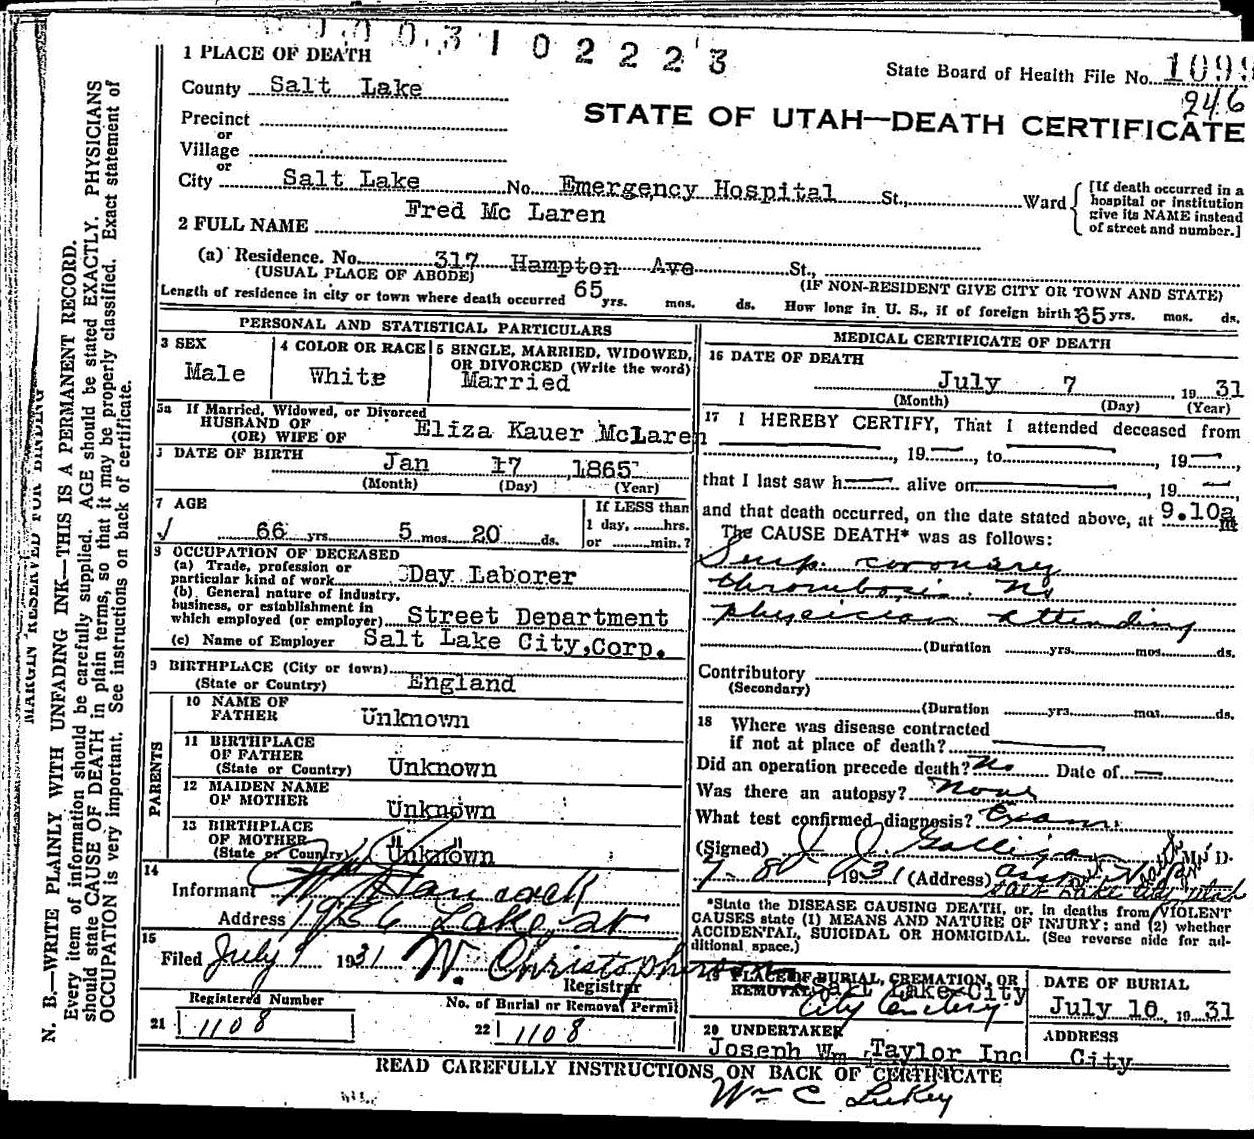 3 1 0 2 2 2 3
1 PLACE OF DEATH
State Board of Health File No. 109
246
County Salt Lake
STATE OF UTAH—DEATH CERTIFICATE
Precinct
or
Village
or
City Salt Lake No. Emergency Hospital St., Ward
[If death occurred in a hospital or institution give its NAME instead of street and number.]
2 FULL NAME Fred Mc Laren
(a) Residence. No. 317 Hampton Ave St.,
(USUAL PLACE OF ABODE) (IF NON-RESIDENT GIVE CITY OR TOWN AND STATE)
Length of residence in city or town where death occurred 65 yrs. mos. ds. How long in U. S., if of foreign birth? 65 yrs. mos. ds.
PERSONAL AND STATISTICAL PARTICULARS
3 SEX
Male
4 COLOR OR RACE
White
5 SINGLE, MARRIED, WIDOWED, OR DIVORCED (Write the word)
Married
5a If Married, Widowed, or Divorced
HUSBAND OF
(OR) WIFE OF Eliza Kauer McLaren
DATE OF BIRTH
Jan 17 1865
(Month) (Day) (Year)
7 AGE
66 yrs. 5 mos. 20 ds.
If LESS than
1 day, hrs.
or min.?
8 OCCUPATION OF DECEASED
(a) Trade, profession or
particular kind of work Day Laborer
(b) General nature of industry,
business, or establishment in
which employed (or employer) Street Department
(c) Name of Employer Salt Lake City,Corp.
9 BIRTHPLACE (City or town)
(State or Country) England
PARENTS
10 NAME OF
FATHER Unknown
11 BIRTHPLACE
OF FATHER
(State or Country) Unknown
12 MAIDEN NAME
OF MOTHER Unknown
13 BIRTHPLACE
OF MOTHER
(State or Country) Unknown
14
Informant Hancock
Address Lake St
15
Filed July 9 1931 W. Christopherson
Registrar
Registered Number
21 1108
No. of Burial or Removal Permit
22 1108
MEDICAL CERTIFICATE OF DEATH
16 DATE OF DEATH
July 7 , 1931
(Month) (Day) (Year)
17 I HEREBY CERTIFY, That I attended deceased from
, 19 , to , 19
that I last saw h alive on , 19
and that death occurred, on the date stated above, at 9.10a m
The CAUSE DEATH* was as follows:
Susp. coronary
thrombosis. No
physician attending
(Duration yrs. mos. ds.
Contributory
(Secondary)
(Duration yrs. mos. ds.
18 Where was disease contracted
if not at place of death?
Did an operation precede death? No Date of
Was there an autopsy? None
What test confirmed diagnosis? Exam.
(Signed) J. J. Galligan M. D.
7-8 1931 (Address)
Salt Lake City Utah
*State the DISEASE CAUSING DEATH, or, in deaths from VIOLENT
CAUSES state (1) MEANS AND NATURE OF INJURY; and (2) whether
ACCIDENTAL, SUICIDAL OR HOMICIDAL. (See reverse side for ad-
ditional space.)
19 PLACE OF BURIAL, CREMATION, OR
REMOVAL Salt Lake City
City Cemetery
DATE OF BURIAL
July 10, 1931
20 UNDERTAKER
Joseph Wm Taylor Inc
ADDRESS
City
READ CAREFULLY INSTRUCTIONS ON BACK OF CERTIFICATE
Wm C
MARGIN RESERVED FOR BINDING
N. B.—WRITE PLAINLY WITH UNFADING INK—THIS IS A PERMANENT RECORD.
Every item of information should be carefully supplied. AGE should be stated EXACTLY. PHYSICIANS
should state CAUSE OF DEATH in plain terms, so that it may be properly classified. Exact statement of
OCCUPATION is very important. See instructions on back of certificate.